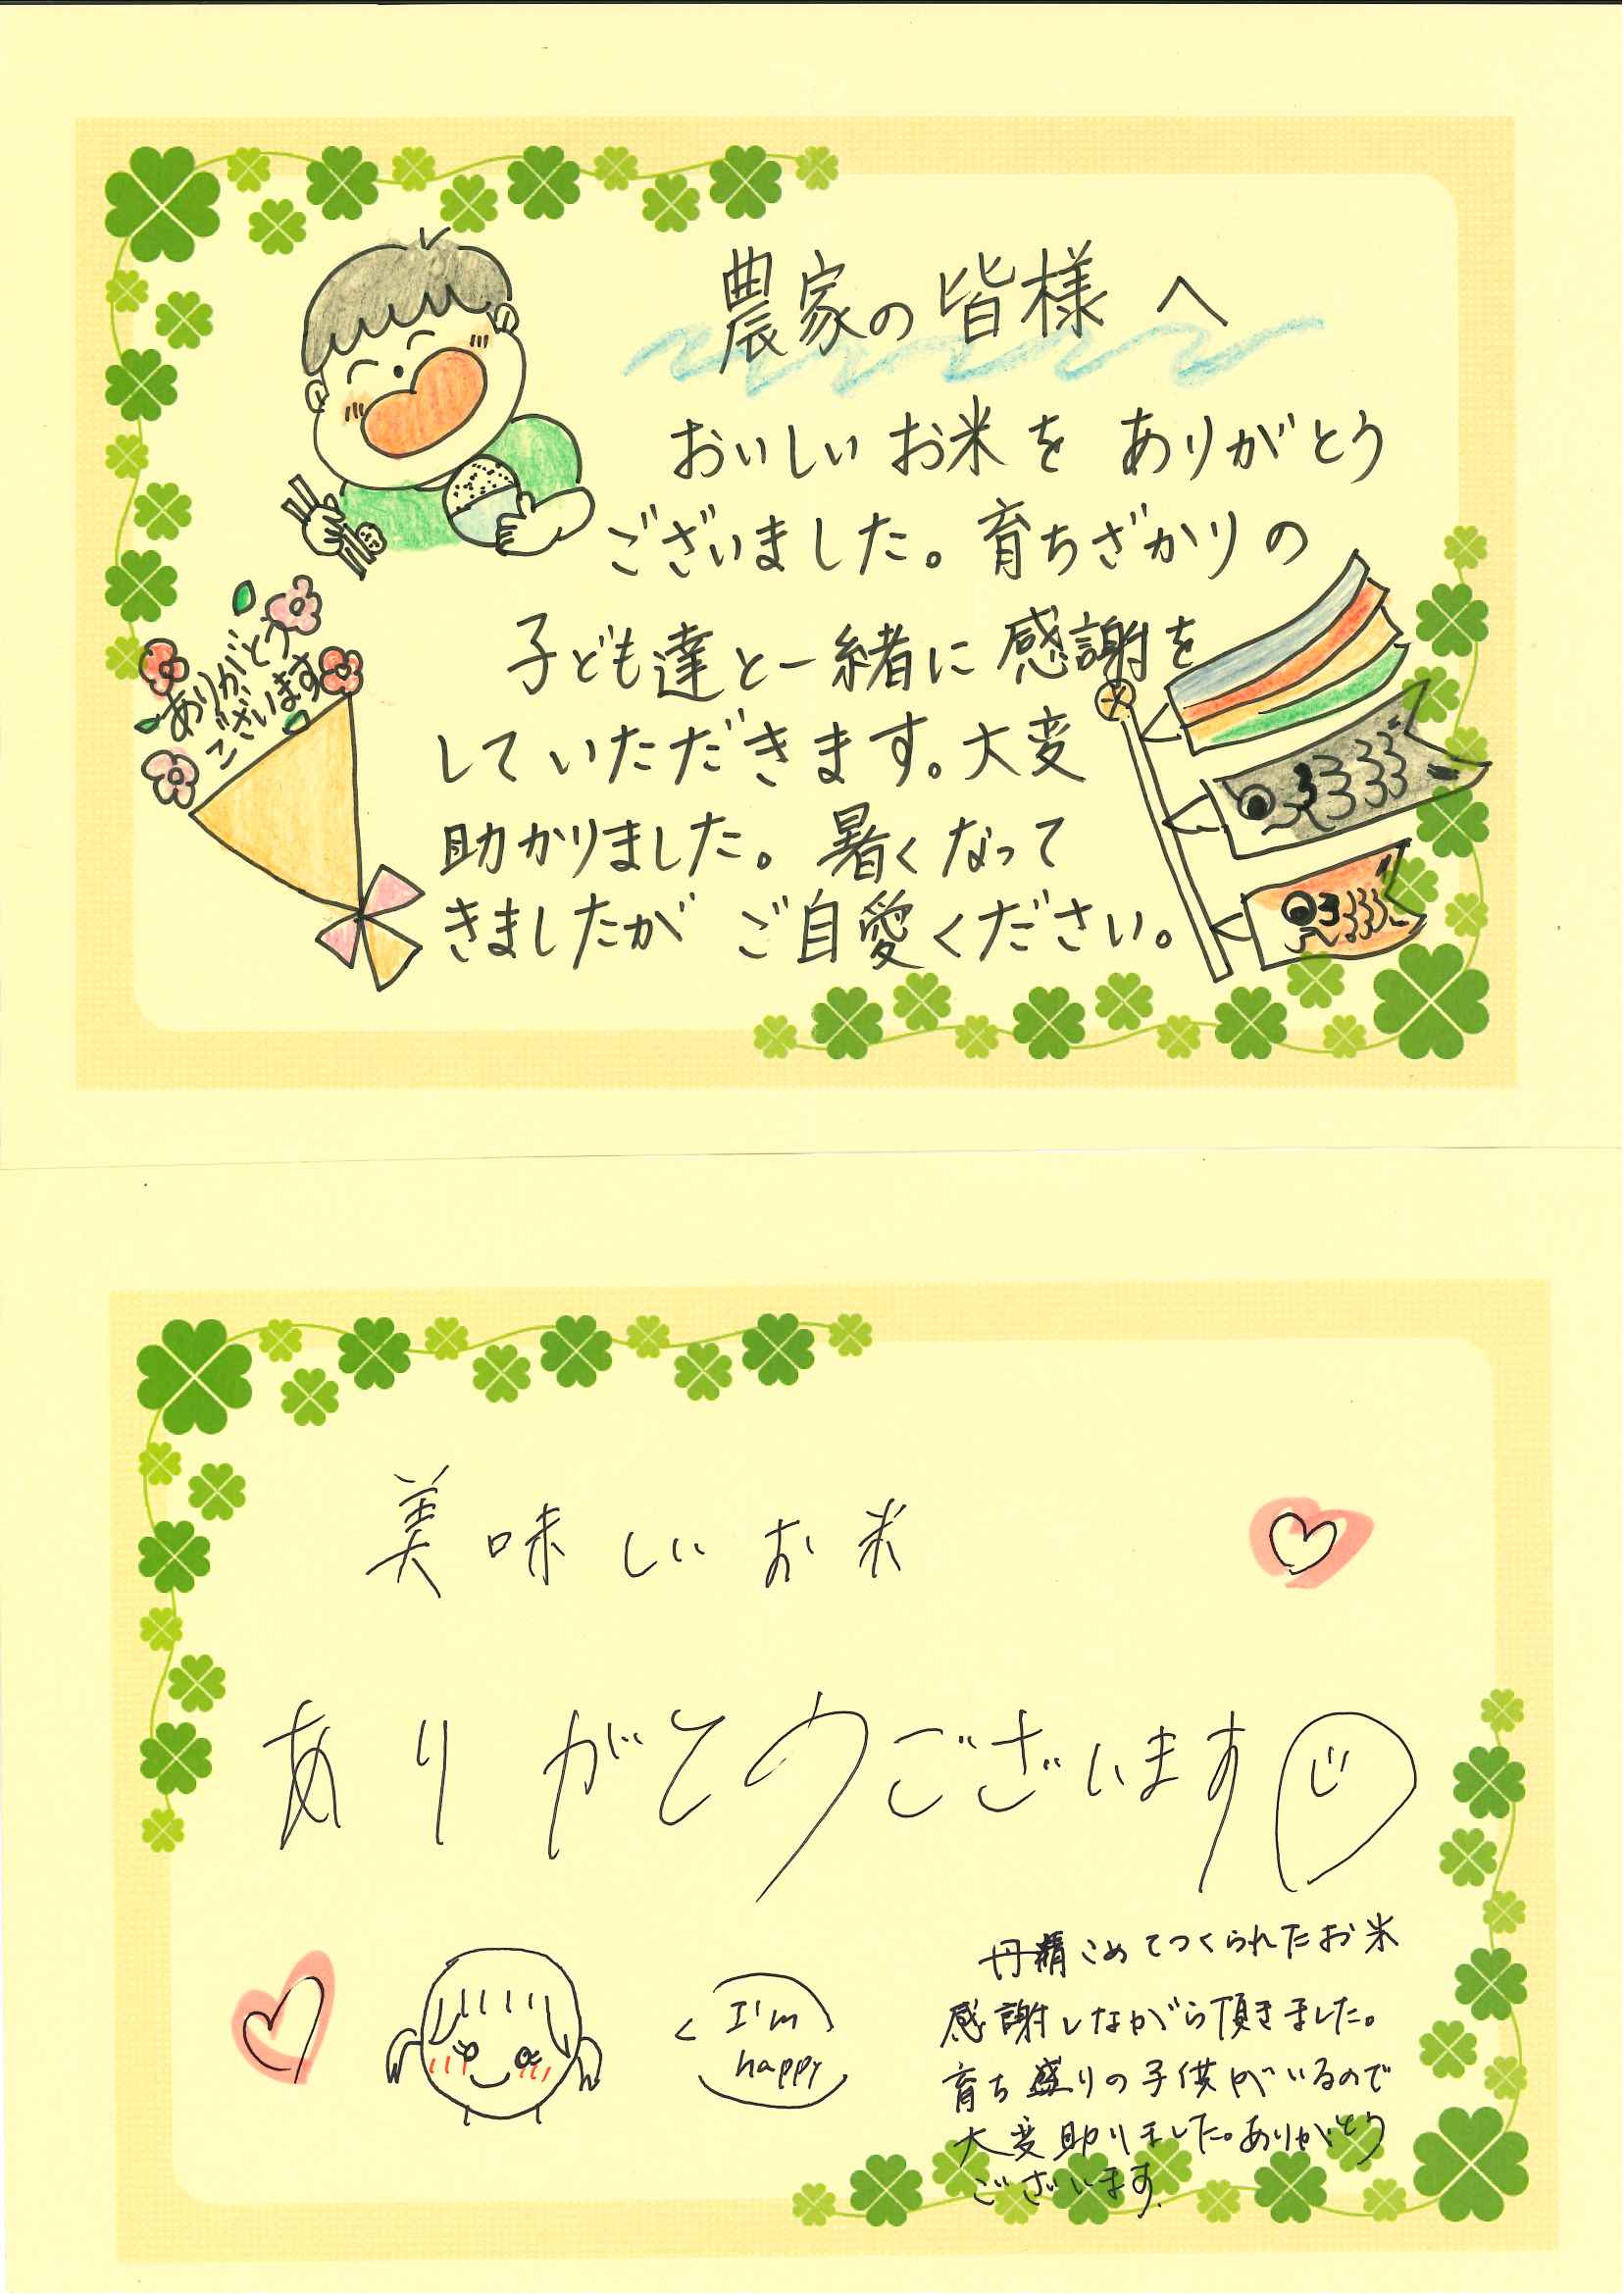 農家の皆様へ
おいしいお米を ありがとう
ございました。育ちざかりの
子ども達と一緒に感謝を
していただきます。大変
助かりました。暑くなって
きましたが ご自愛ください。
ありがとう
ございます
美味しいお米
ありがとうございます
I'm
happy
丹精こめてつくられたお米
感謝しながら頂きました。
育ち盛りの子供がいるので
大変助りました。ありがとう
ございます。